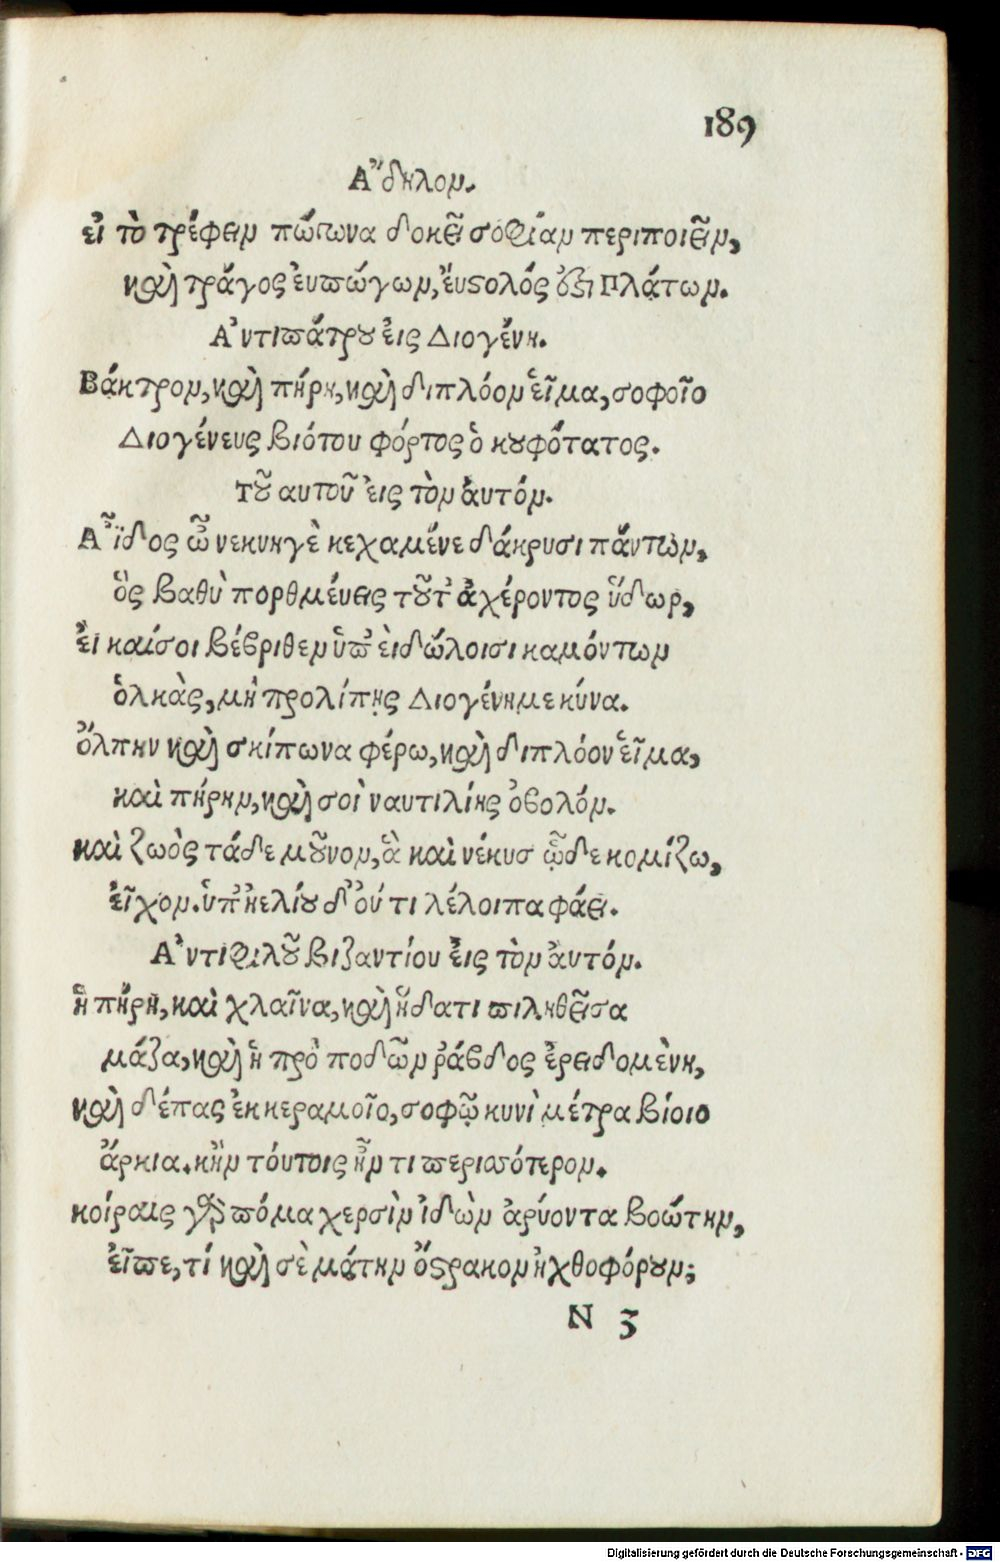 189
Ἄδηλον.
εἰ τὸ τρέφειν πώγωνα δοκεῖ σοφίαν περιποιεῖν,
καὶ τράγος ἐυπώγων, ἔυστολός ὅλος Πλάτων.
Ἀντιπάτρου ἐις Διογένη.
Βάκτρον, καὶ πήρη, καὶ διπλόον εἷμα, σοφοῖο
Διογένευς βιότου φόρτος ὁ κουφότατος.
Τοῦ αυτοῦ ἐις τὸν ἀυτόν.
Ἄϊδος ὦ νεκυηγὲ κεχαμένε δάκρυσι πάντων,
ὃς βαθὺ πορθμέυεις τοῦτ' ἀχέροντος ὕδωρ,
ἐι καί σοι βέβριθεν ὑπ' ἐιδώλοισι καμόντων
ὁλκὰς, μὴ προλίπῃς Διογένημε κύνα.
Ὄλπην καὶ σκίπωνα φέρω, καὶ διπλόον εἷμα,
καὶ πήρην, καὶ σοὶ ναυτιλίης ὀβολόν.
καὶ ζωὸς τάδε μοῦνον, ἃ καὶ νέκυσ ὧδε κομίζω,
εἶχον. ὑπ' ἠελίου δ' ού τι λέλοιπα φάει.
Ἀντιφιλοῦ Βιζαντίου ἐις τὸν ἀυτόν.
ἡ πήρη, καὶ χλαῖνα, καὶ ἥδατι πιληθεῖσα
μάζα, καὶ ἡ πρὸ ποδῶν ῥάβδος ἐρειδομὲνη,
καὶ δέπας ἐκ κεραμοῖο, σοφῷ κυνὶ μέτρα βίοιο
ἄρκια. κἢν τόυτοις ἦν τι περισσότερον.
κοίραις γὰρ πόμα χερσὶν ἰδὼν ἀρύοντα βοώτην,
εἶπε, τί καὶ σὲ μάτην ὄστρακον ἠχθοφόρουν;
N 3
Digitalisierung gefördert durch die Deutsche Forschungsgemeinschaft - DFG